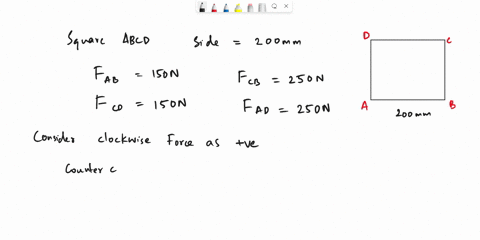 Square ABCD side = 200mm
F AB = 150N F CB = 250N
F CD = 150N F AD = 250N
Consider clockwise Force as +ve
Counter c
D C
A B
200mm